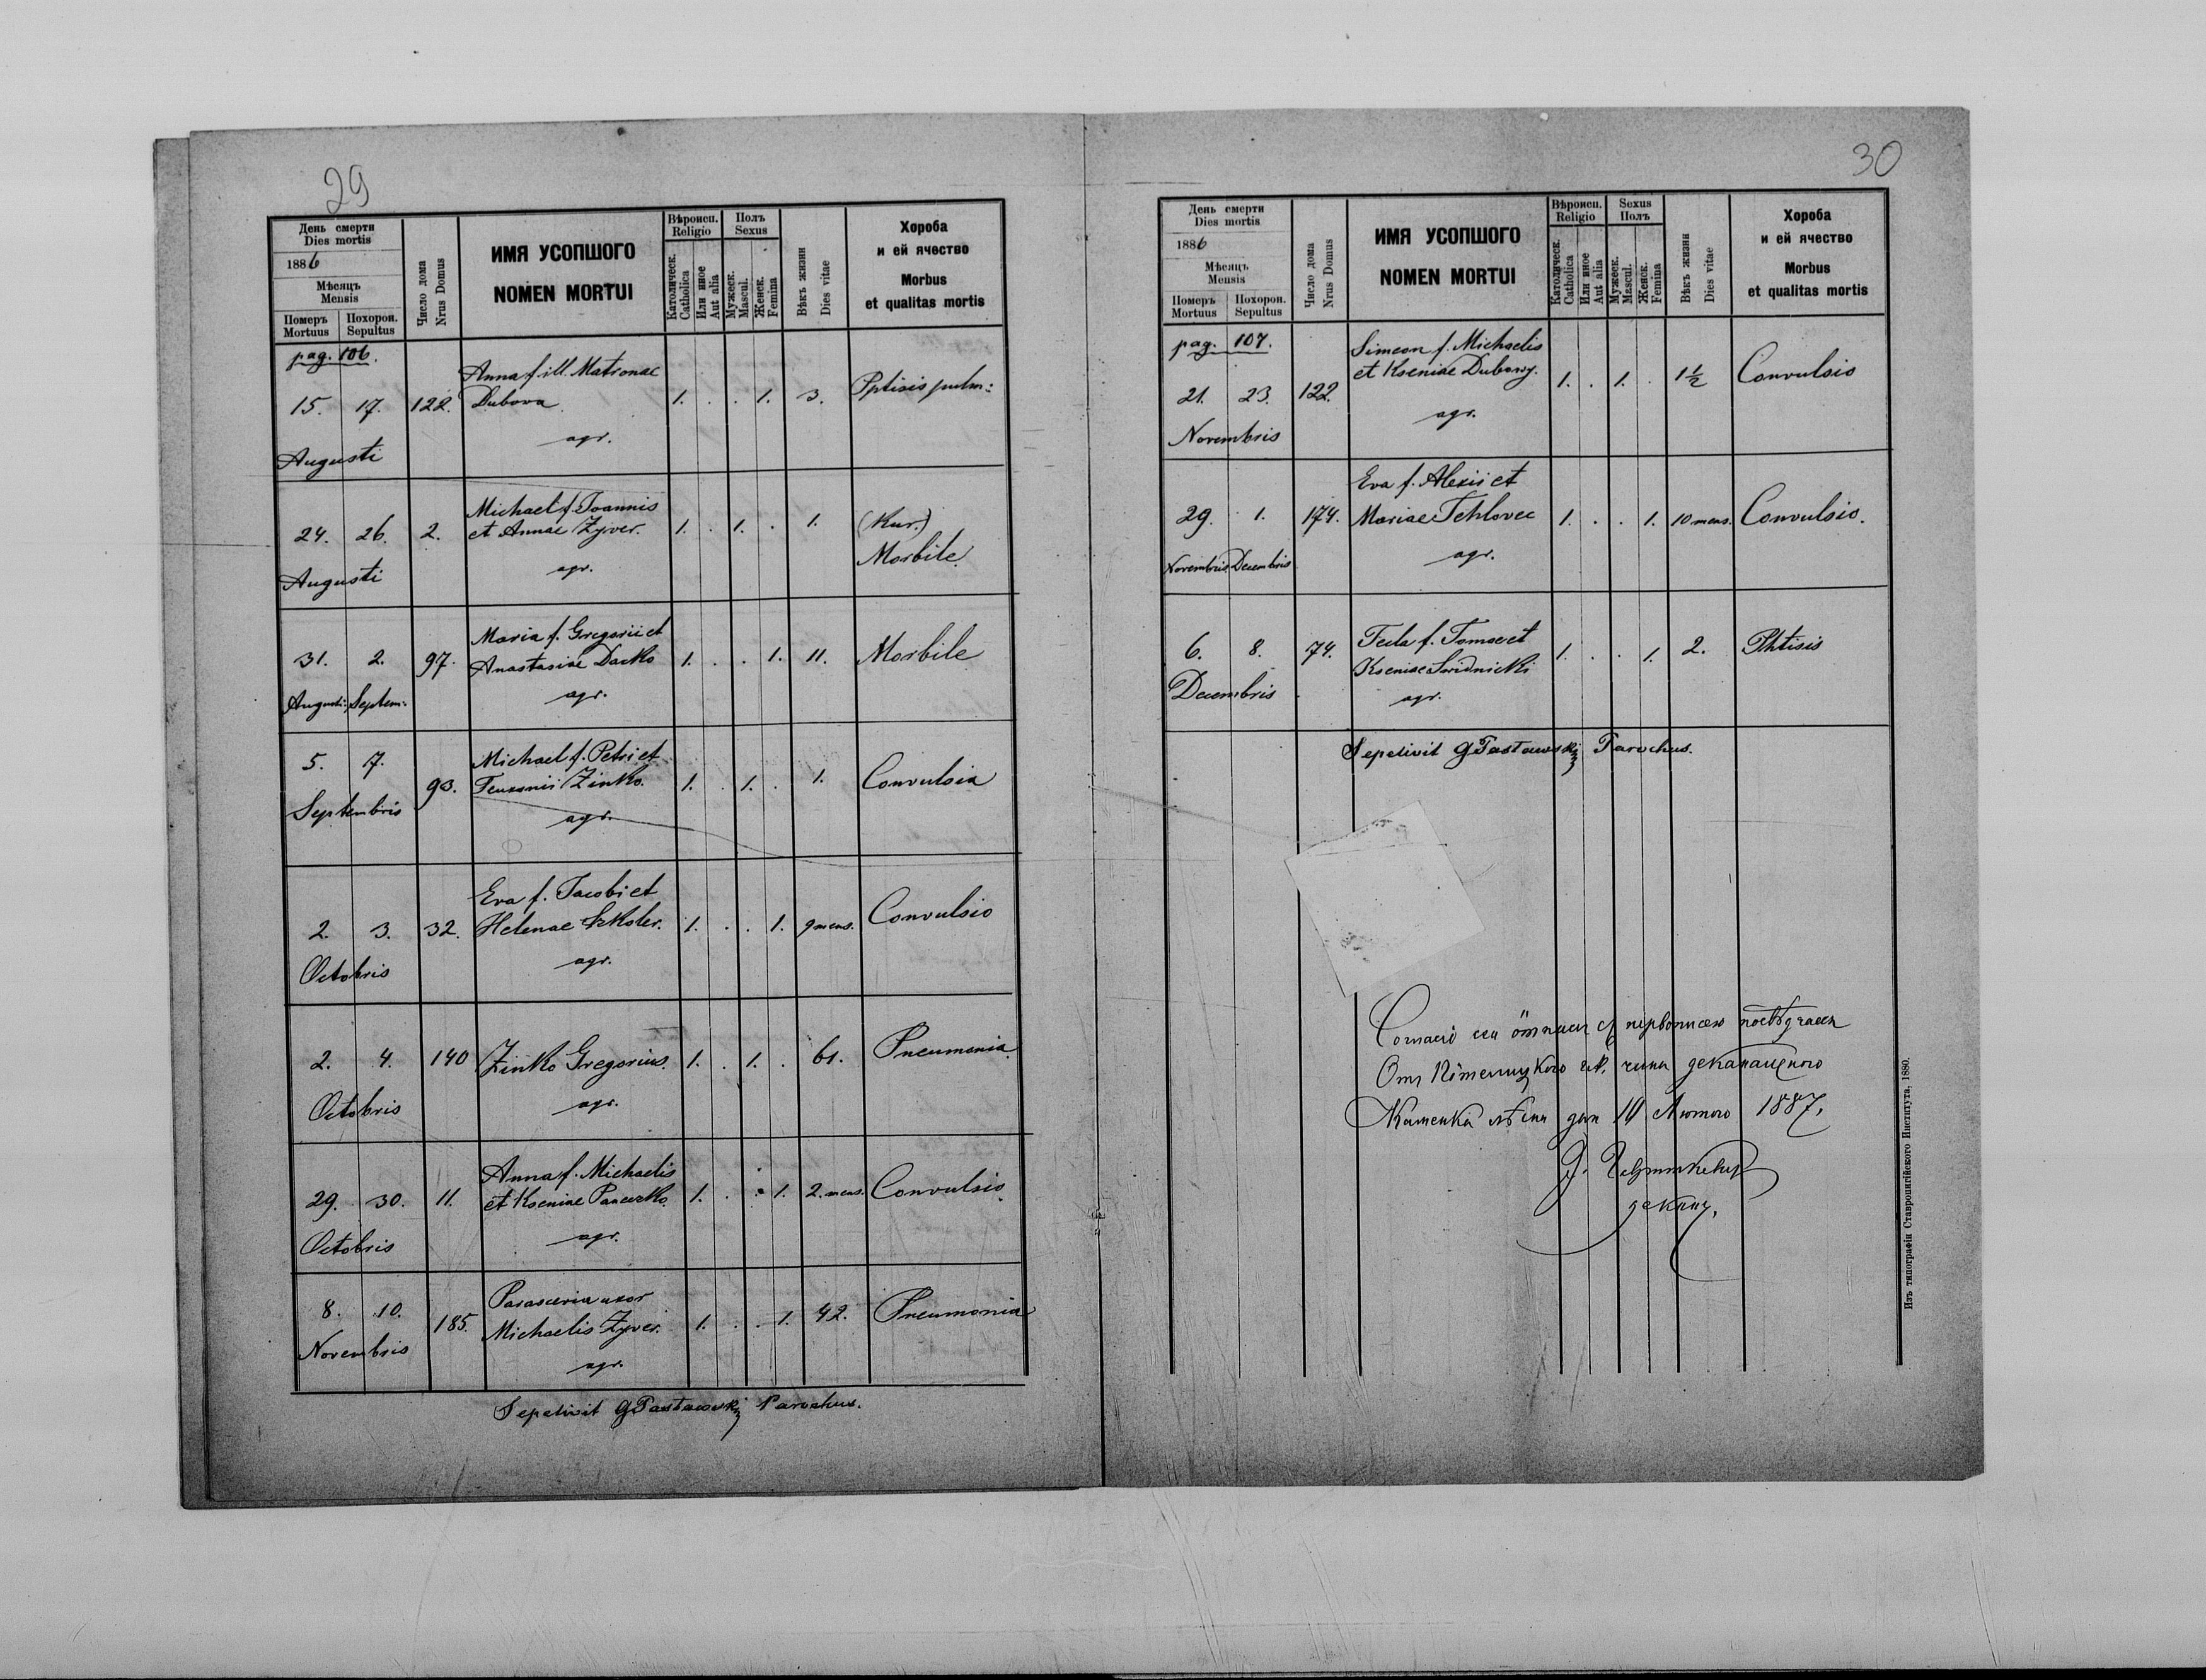 29
День смерти
Dies mortis
1886
Мѣсяцъ
Mensis
Померъ
Mortuus
Похорон.
Sepultus
Число дома
Nrus Domus
ИМЯ УСОПШОГО
NOMEN MORTUI
Вѣроисп.
Religio
Католическ.
Catholica
Или иное
Aut alia
Полъ
Sexus
Мужеск.
Mascul.
Женск.
Femina
Вѣкъ жизни
Dies vitae
Хороба
и ей ячество
Morbus
et qualitas mortis
pag. 106.
Anna f. ill. Matronae
15. 17. 122. Dubova 1. . . 1. 3. Pptisis pulm:
agr.
Augusti
Michael f. Joannis
24. 26. 2. et Annae Zyver. 1. . 1. . 1. (Kur.)
Morbile
agr.
Augusti
Maria f. Gregorii et
31. 2. 97. Anastasiae Dacko 1. . . 1. 11. Morbile
agr.
Augusti: Septem:
5. 7. Michael f. Petri et
93. Zinko. 1. . 1. . 1. Convulsia
Septembris
agr.
Eva f. Jacobi et
2. 3. 32. Helenae Szkoler. 1. . . 1. 9 mens. Convulsio
agr.
Octobris
2. 4. 140 Zinko Gregorius. 1. . 1. . 61. Pneumonia
agr.
Octobris
Anna f. Michaelis
29. 30. 11. et Kseniae Paneczko. 1. . . 1. 2. mens. Convulsio
agr.
Octobris
8. 10. Parasceria uxor
185. Michaelis Zyver. 1. . . 1. 42. Pneumonia
Novembris
agr.
Sepelivit GPastawski Parochus.
30
День смерти
Dies mortis
1886
Мѣсяцъ
Mensis
Померъ
Mortuus
Похорон.
Sepultus
Число дома
Nrus Domus
ИМЯ УСОПШОГО
NOMEN MORTUI
Вѣроисп.
Religio
Католическ.
Catholica
Или иное
Aut alia
Sexus
Полъ
Мужеск.
Mascul.
Женск.
Femina
Вѣкъ жизни
Dies vitae
Хороба
и ей ячество
Morbus
et qualitas mortis
pag. 107.
Simeon f. Michaelis
et Kseniae Dubowy.
21. 23. 122. 1. . 1. . 1½ Convulsio
agr.
Novembris
Eva f. Alexii et
29. 1. 174. Mariae Tchlovec 1. . . 1. 10 mens. Convulsio.
agr.
Novembris Decembris
6. 8. 74. Tecla f. Tomae et
Kseniae Swidnicki 1. . . 1. 2. Phtisis
Decembris
agr.
Sepelivit GPastawski Parochus.
дня 10 Лютого 1887,
деканъ,
Изъ типографіи Ставропигійского Института, 1880.